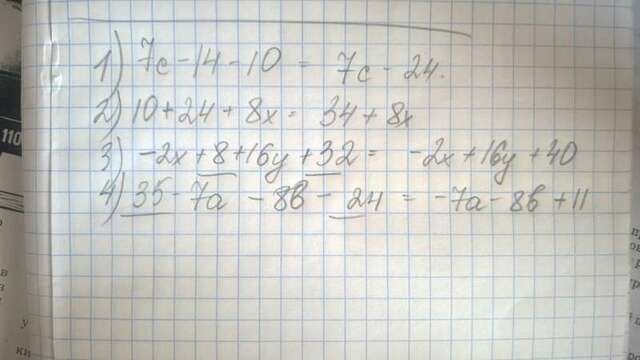 1) 7c - 14 - 10 = 7c - 24.
2) 10 + 24 + 8x = 34 + 8x
3) -2x + 8 + 16y + 32 = -2x + 16y + 40
4) 35 - 7a - 8b - 24 = -7a - 8b + 11
110
в
у
ки